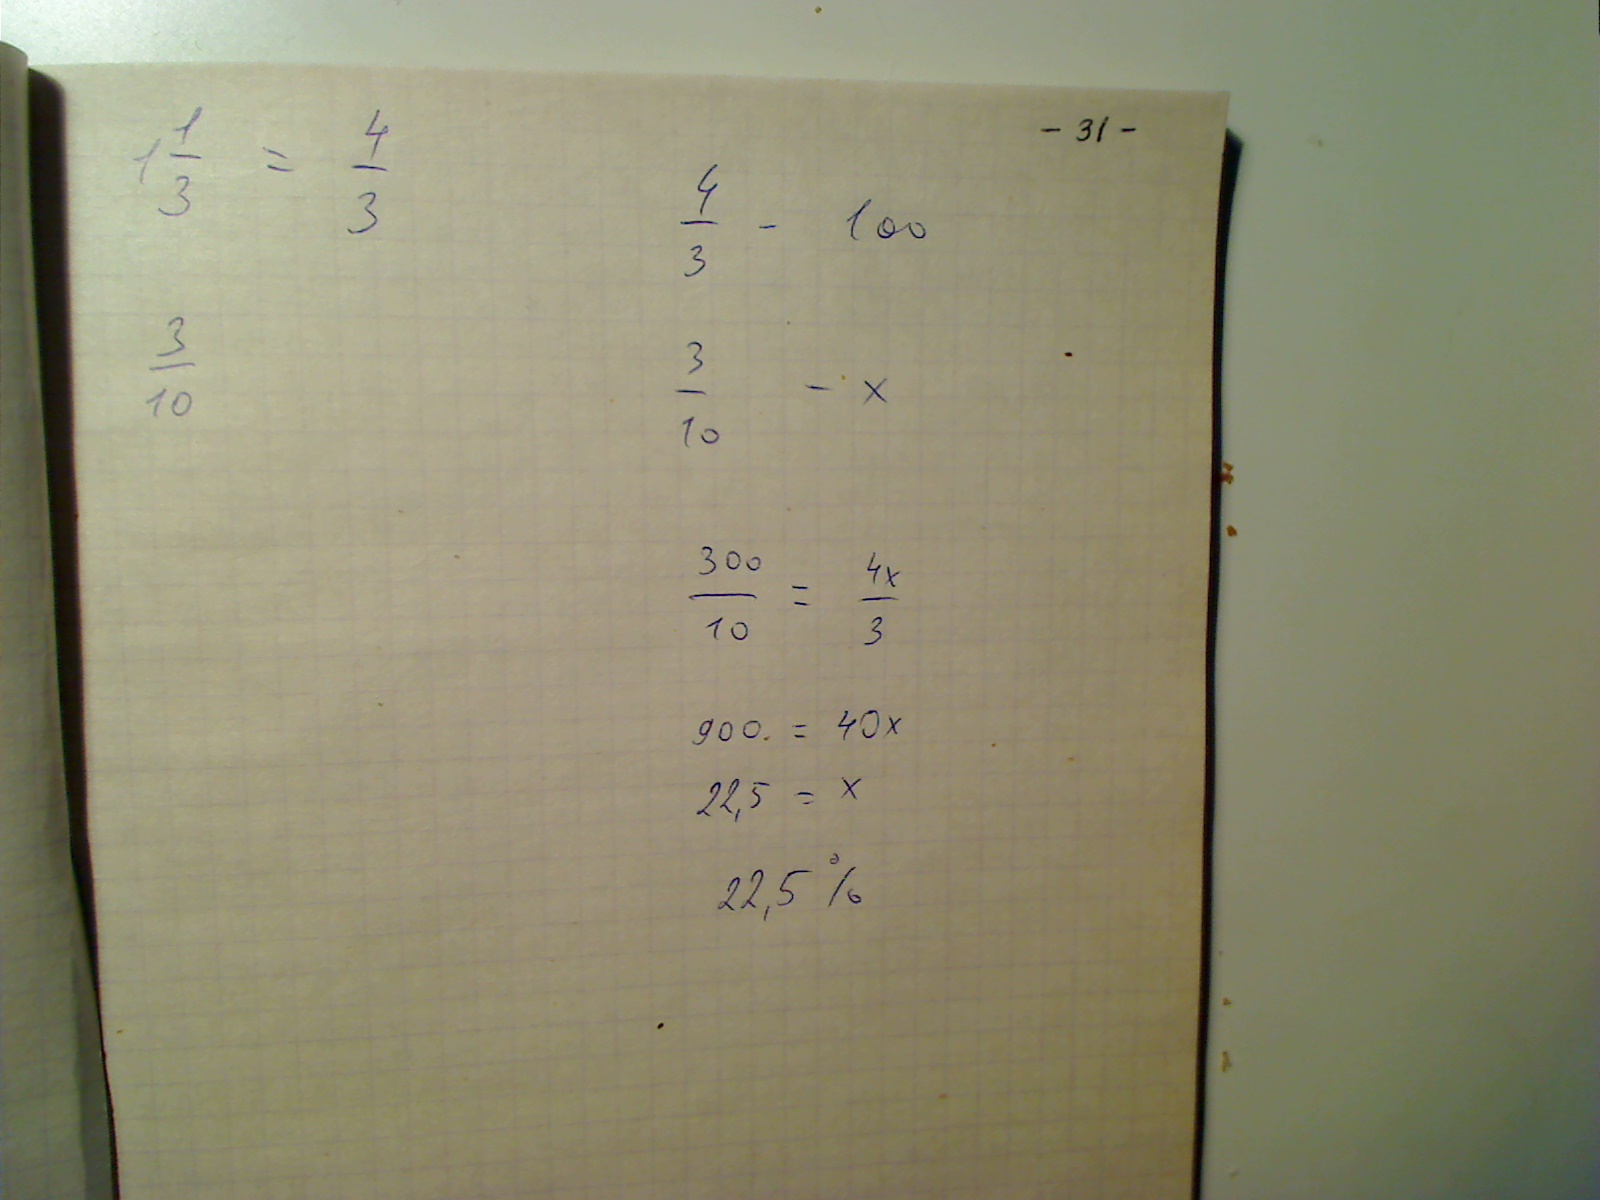 - 31 -
1 1/3 = 4/3
4/3 - 100
3/10
3/10 - x
300/10 = 4x/3
900. = 40x
22,5 = x
22,5 %